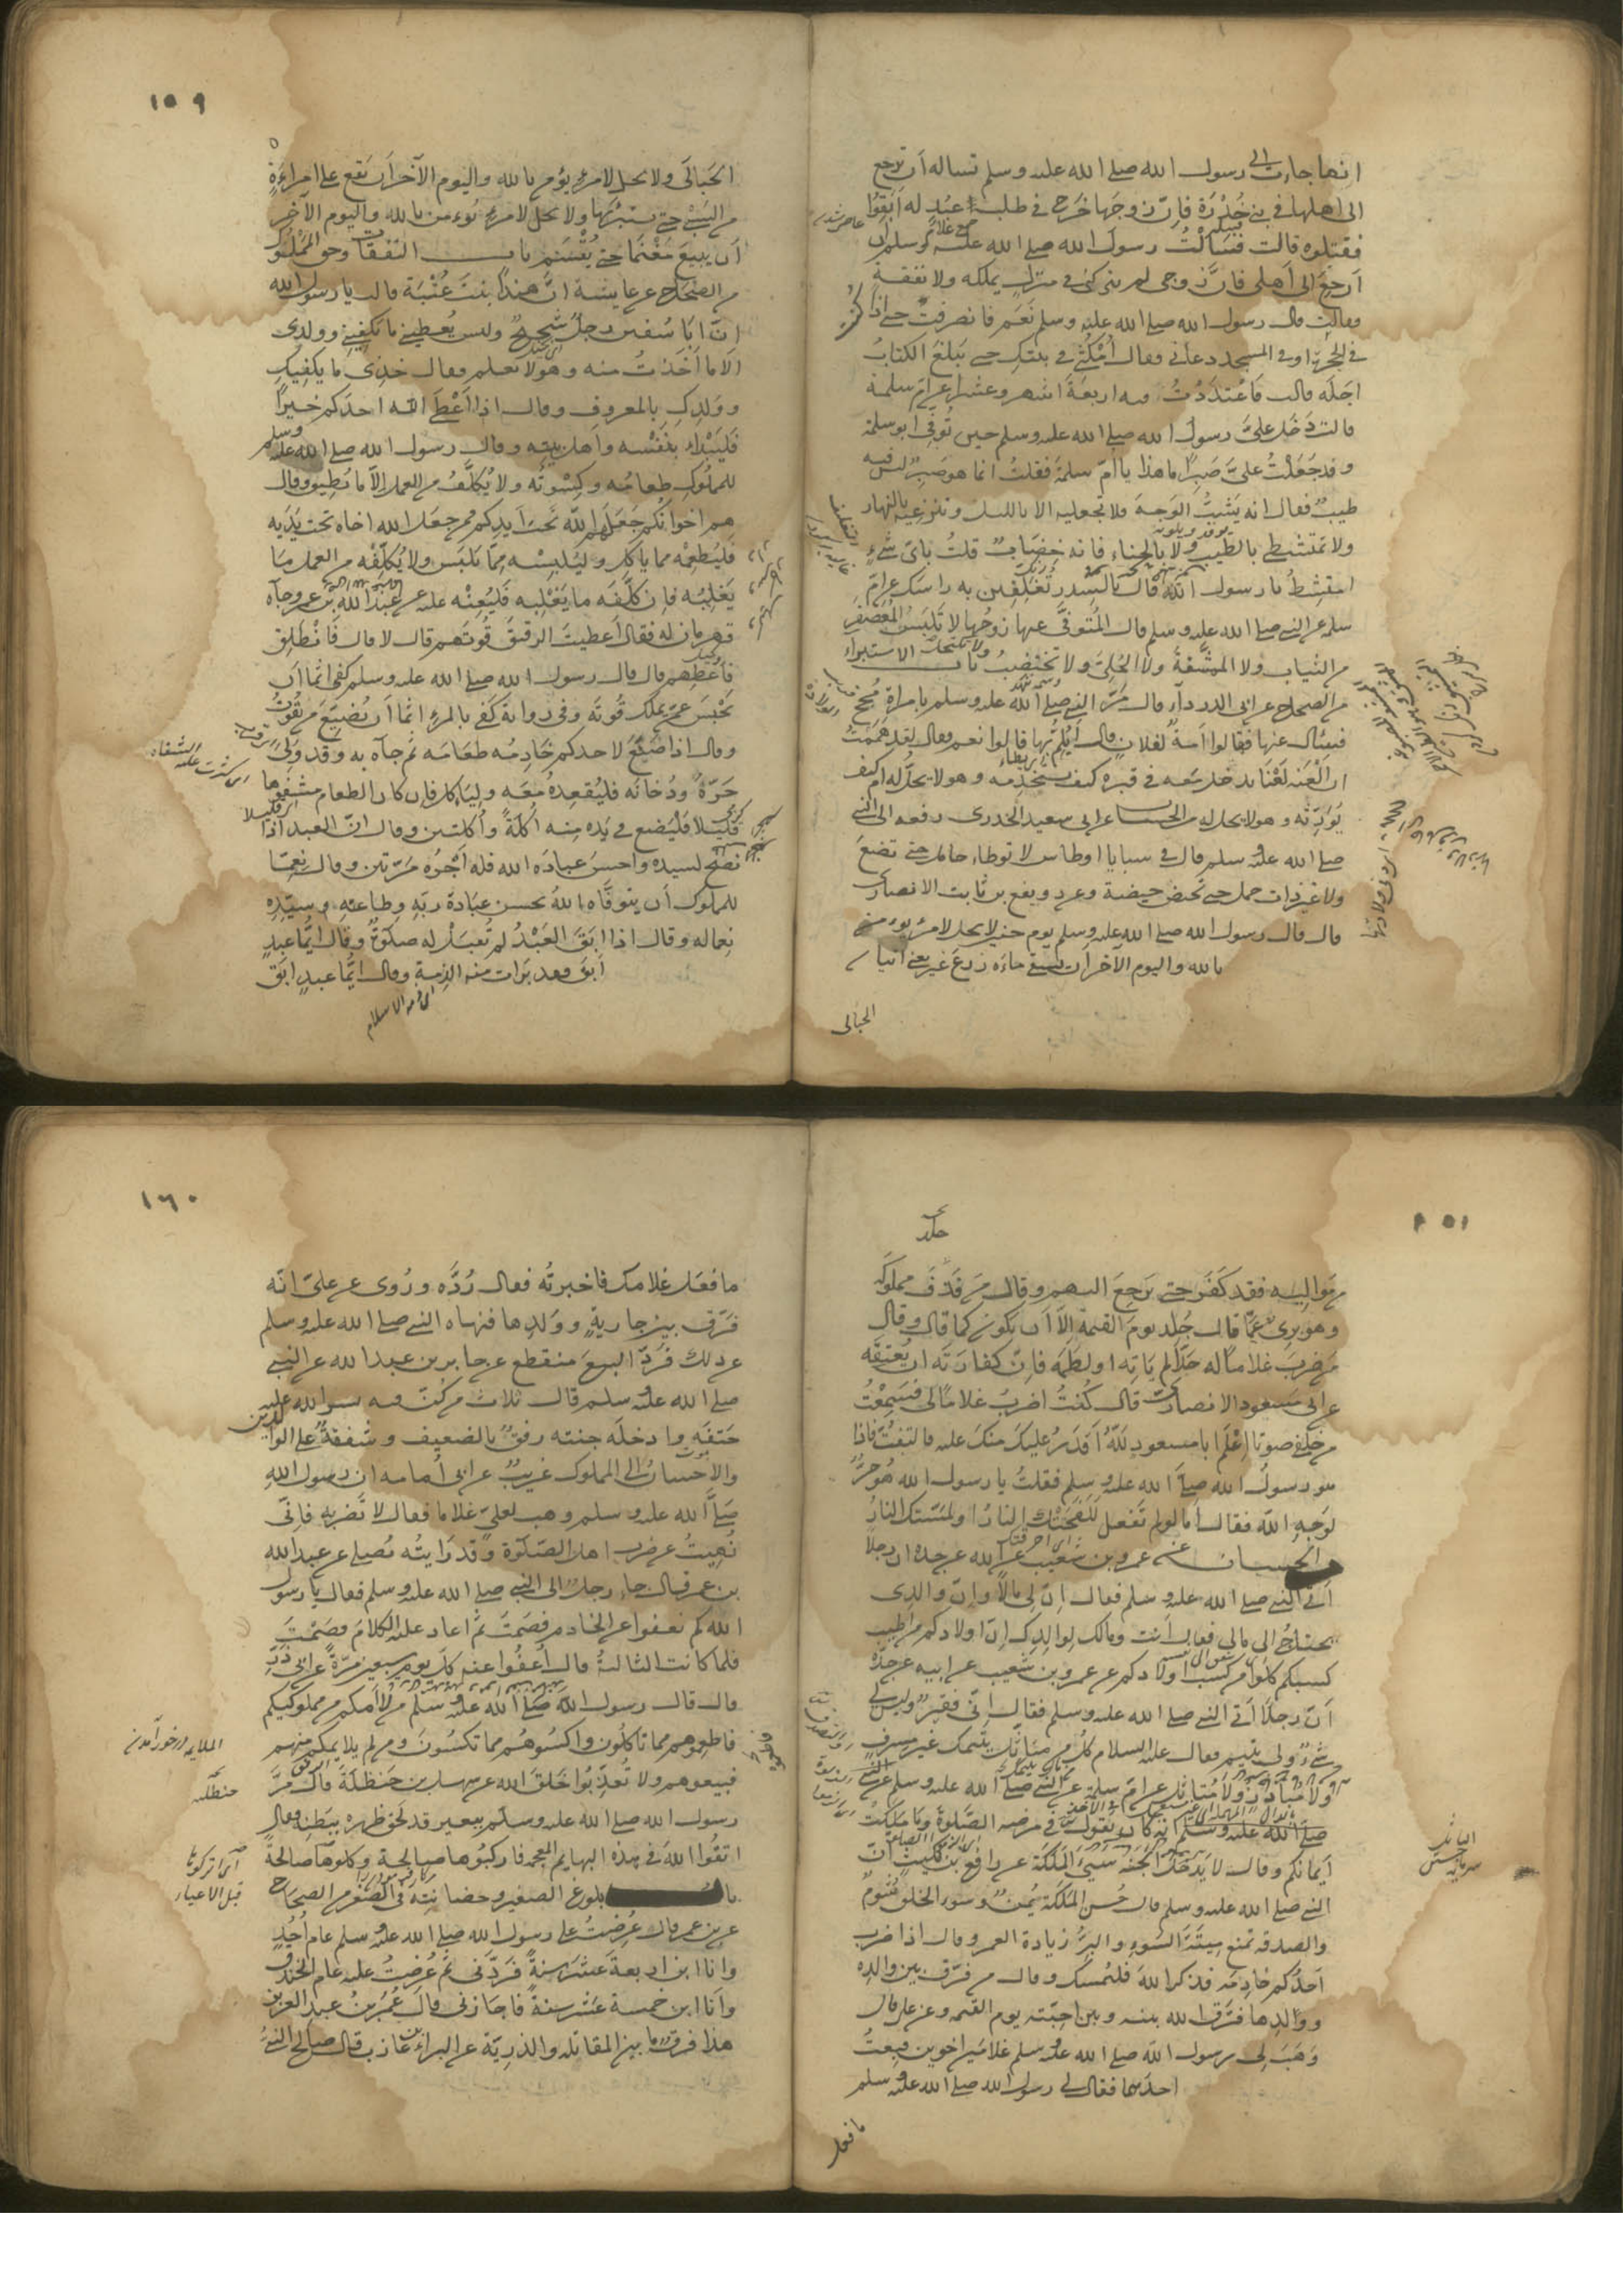 انها جاءت الى رسول الله صلى الله عليه وسلم تساله ان ترجع
الى اهلها في بني خُدْرَة فاِنّ زوجها خرج في طلب اَعْبُدٍ له اَبَقُوا
فقتلوه قالت فسَاَلْتُ رسولَ الله صلى الله عليه وسلم ان
اَرجعَ الى اَهلى فانّ زوجى لم يتركني في منزل يملكه ولا نفقةٍ
فقالت قال رسول الله صلى الله عليه وسلم نَعَم فانصرفتُ حتى اذا كنت
في الحُجرة او في المسجد دعانى فقال اُمْكُثِي في بيتكِ حتى يَبلغَ الكتابُ
اجَلَه قالت فاعْتَدَدْتُ فيه اربعةَ اشهر وعشرا عن امّ سلمة
قالت دَخَل علىَّ رسولُ الله صلى الله عليه وسلم حين تُوفّى ابو سلمة
وقد جَعَلْتُ علىَّ صَبِرًا ما هذا يا امّ سلمةَ فقلتُ انما هو صَبِرٌ ليس فيه
طيبٌ فقال انه يَشُبُّ الوَجهَ فلا تجعليه الا بالليل وتنزعيه بالنهار
ولا تمتشطى بالطيب ولا بالحناء فانه خضابٌ قلتُ باىّ شىءٍ
امتشِطُ يا رسول الله قال بالسِدر تُغَلِّفين به راسكِ عن امّ
سلمة عن النبي صلى الله عليه وسلم قال المُتوَفَّى عنها زوجُها لا تَلبَسُ المُعَصْفَر
من الثياب ولا الممشّقةَ ولا الحُلِىَّ ولا تختضِبُ ولا تكتحل باب الاستبراء
من الصحاح عن ابى الدرداء قال مَرَّ النبي صلى الله عليه وسلم بامراةٍ مُجِحٍّ
فسأل عنها فقالوا اَمَةٌ لفلانٍ قال اَيُلِمُّ بها قالوا نعم فقال لقد هَمَمْتُ
ان اَلْعَنَه لَعْنًا يدخل معه في قبره كيف يستخدِمُه وهو لا يحلّ له ام كيف
يُوَرِّثُه وهو لا يحل له من الحسان عن ابى سعيد الخدرى رفعه الى النبي
صلى الله عليه وسلم قال في سبايا اوطاس لا توطاء حامل حتى تضعَ
ولا غير ذات حمل حتى تحيض حيضة وعن رويفع بن ثابت الانصارى
قال قال رسول الله صلى الله عليه وسلم يوم حنين لا يحل لامرئ يومن
بالله واليوم الآخر ان يسقى ماءَه زرعَ غيره يعنى اتيان
الحبالى
١٥٩
الحَبالَى ولا يحل لامرئ يؤمن بالله واليوم الآخر ان يَقع على امراةٍ
من السَبْى حتى يستبرئها ولا يحل لامرئ يُومن بالله واليوم الآخر
اَن يبيعَ مَغْنَمًا حتى يُقْسَم باب النفقات وحق المَمْلُوك
من الصحاح عن عايشة انّ هندًا بنتَ عُتْبَة قالت يا رسول الله
انّ ابَا سُفين رجلٌ شحيحٌ وليس يُعطِينى ما يَكفِينى وولدِى
الّا ما اَخَذْتُ منه وهو لا يعلم فقال خُذِى ما يكفيكِ
ووَلدِكِ بالمعروفِ وقال اذا اَعْطَى الله احدَكم خيرًا
فَليَبْدَاء بنَفْسه وَاهل بيته وقال رسول الله صلى الله عليه وسلم
للمملُوكِ طعامُه وكِسْوتُه ولا يُكلَّفُ من العمل اِلّا ما يُطيق وقال
هم اخوانُكم جَعَلَهم اللّه تحتَ اَيديكم فمن جعَلَ الله اخاه تحت يَدَيه
فليُطْعِمْه مما ياكل وليُلبِسْه مِمّا يَلبَس ولا يُكلِّفْه من العمل ما
يَغلِبُه فاِن كلَّفَه ما يَغْلِبه فَليُعِنْه عليه عن عبد الله بن عمرو جآه
قهرمان له فقال اَعطيتَ الرقيقَ قُوتَهم قال لا قال فَانْطَلِق
فَاَعْطِهم قال قال رسول الله صلى الله عليه وسلم كفى اثما اَن
يَحْبِسَ عمّن يملك قُوتَه وفي رواية كَفى بالمرءِ اثما اَن يُضيّعَ من يقُوتُ
وقال اذا صَنَعَ لاحدكم خَادِمُه طعَامَه ثم جآه به وقد وَلِى
حَرّهُ ودُخانَه فليُقعِدهُ مَعَه ولياكل فاِن كان الطعام مشفوها
قليلا فليَضع في يَدِه مِنه اُكْلةً او اُكلتين وقال انّ العبد اذا
نصَح لسيده واحسنَ عبادَة الله فله اَجْرُه مَرّتين وقال نِعِمّا
للمملوك اَن يتوفّاه اللهُ بحسن عِبَادة ربّهِ وطاعتِهِ وسيّدِه
نِعمّا له وقال اذا ابَقَ العَبْدُ لم تُقبَلْ له صلوةٌ وقال اَيُّما عبدٍ
اَبَق فقد بَرِات منه الذِمة وقال ايُّما عبدٍ ابَق
اى ذمة الاسلام
مِن مَواليه فقد كَفَر حتى يَرجِعَ اليهم وقال مَن قذَفَ مملوكَه
وهو بَرِىءٌ عمّا قال جُلِد يومَ القيمة اِلّا اَن يكونَ كما قال وقال
مَن ضربَ غلامًا له حدًّا لم يَاتِه او لطَمَه فاِنّ كفارَتَه ان يُعتِقَه
عن ابى مسعود الانصارى قال كُنتُ اضربُ غلامًا لى فسَمِعْتُ
من خلفى صوتا اِعْلَم ابا مسعود لَلّهُ اَقدَرُ عليكَ منكَ عليه فالتفتُّ فاذا
هو رسولُ الله صلى الله عليه وسلم فقلتُ يا رسول الله هو حرٌّ
لوَجهِ اللّه فقال اَما لو لم تَفعل لَلَفَحَتْكَ النارُ او لمَسّتك النارُ
من الحسان عن عمرو بن شُعَيب عن ابيه عن جده ان رجلًا
اَتى النبي صلى الله عليه وسلم فقال اِنّ لى مالًا وانّ والدى
يحتاجُ الى مالى فقال اَنت ومالك لوالدِكَ اِنّ اولادكم من اَطيب
كسبكم كلوا من كَسْب اولادكم عن عمرو بن شُعيب عن ابيه عن جدّه
اَنّ رجلًا اَتى النبي صلى الله عليه وسلم فقال اِنّى فقيرٌ وليس لى
شىءٌ ولى يتيم فقال عليه السلام كُلْ من مال يتيمك غير مُسرِفٍ
ولا مُبادِرٍ ولا مُتاثّلٍ عن امّ سلمة عن النبي
صلى الله عليه وسلم انه كان يقول في مرضه الصّلوةَ وما مَلكتْ
اَيمانكم وقال لا يَدخلُ الجَنّة سَيّئُ المَلَكةِ عن رافع بن مَكيثٍ انّ
النبي صلى الله عليه وسلم قال حُسن المَلَكَة يُمنٌ وسوء الخلق شُومٌ
والصدقه تمنع مِيتَةَ السُوءِ والبِرُّ زيادة العمر وقال اذا ضرب
احدُكم خادِمَه فذكر اللهَ فليُمسك وقال من فرّق بين والدة
ووَلدِها فرّق الله بينه وبين احِبّتِه يوم القيمه وعن على قال
وَهَبَ لى رسول الله صلى الله عليه وسلم غلامَين اخوين فبِعتُ
احدهما فقال لى رسول الله صلى الله عليه وسلم
ما فعل
١٦٠
ما فعَل غلامك فاخبرتُه فقال رُدَّه ورُوى عن علىّ انّه
فرّق بين جاريةٍ ووَلدِها فنهاه النبي صلى الله عليه وسلم
عن ذلك فَرَدّ البيعَ منقطع عن جابر بن عبد الله عن النبي
صلى الله عليه وسلم قال ثلاث من كنّ فيه يسر الله عليه
حَتفَه وادخلَه جنته رفقٌ بالضعيف وشَفقةٌ على الوالدين
والاحسانُ الى المملوك غريبٌ عن ابى اُمامه ان رسول الله
صلّى الله عليه وسلم وهب لعلىٍّ غلاما فقال لا تَضربه فاِنّى
نُهِيتُ عن ضرب اهل الصّلوة وقد رَايتُه يُصلى عن عبد الله
بن عمر قال جاء رجلٌ الى النبي صلى الله عليه وسلم فقال يا رسول
الله كم نعفوا عن الخادم فصَمَتَ ثم اعاد عليه الكلامَ فصَمْتَ
فلما كانت الثالثةُ قال اُعفُوا عنه كلَّ يومٍ سبعين مرّةً عن ابى ذَرٍّ
قال قال رسول الله صلى الله عليه وسلم من لاأَمكم من مملوكيكم
فاطعِموهم مما تاكلُون واكسُوهُم مما تكسُونَ ومن لم يلايمكم منهم
فبيعوهم ولا تُعذِّبُوا خَلقَ الله عن سهل بن حَنظلةَ قال مَرَّ
رسول الله صلى الله عليه وسلم ببعير قد لحِق ظهره ببَطنِه فقال
اتقُوا اللهَ في هذه البهايم المعجمه فاركبُوها صالحة وكلوها صالحةً
باب بلوغ الصغير وحضانته في الصغر من الصحاح
عن بن عمر قال عُرِضتُ على رسول الله صلى الله عليه وسلم عام اُحُدٍ
وانا ابن اربعةَ عَشَرَ سنةً فَرَدَّنى ثم عُرِضتُ عليه عام الخندق
وانا ابن خمسة عَشَر سنةً فاجازنى قال عُمَر بنُ عبد العزيز
هذا فرقُ ما بين المقاتله والذريّة عن البراء بن عازب قال صالح النبيُّ